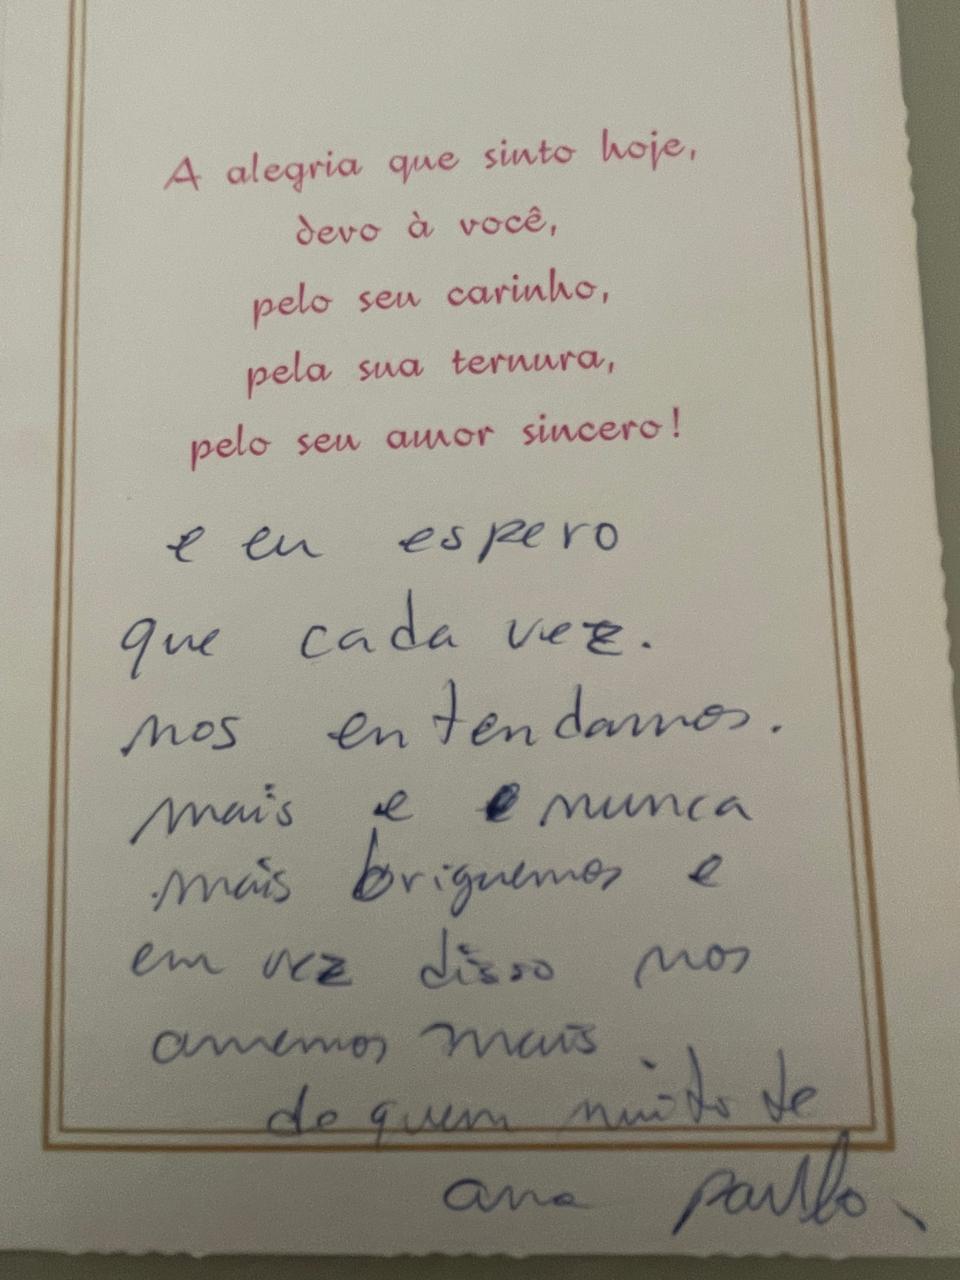 A alegria que sinto hoje,
devo à você,
pelo seu carinho,
pela sua ternura,
pelo seu amor sincero!
e eu espero
que cada vez.
nos entendamos.
mais e e nunca
mais briguemos e
em vez disso nos
amemos mais.
de quem muito te
ama paulo.